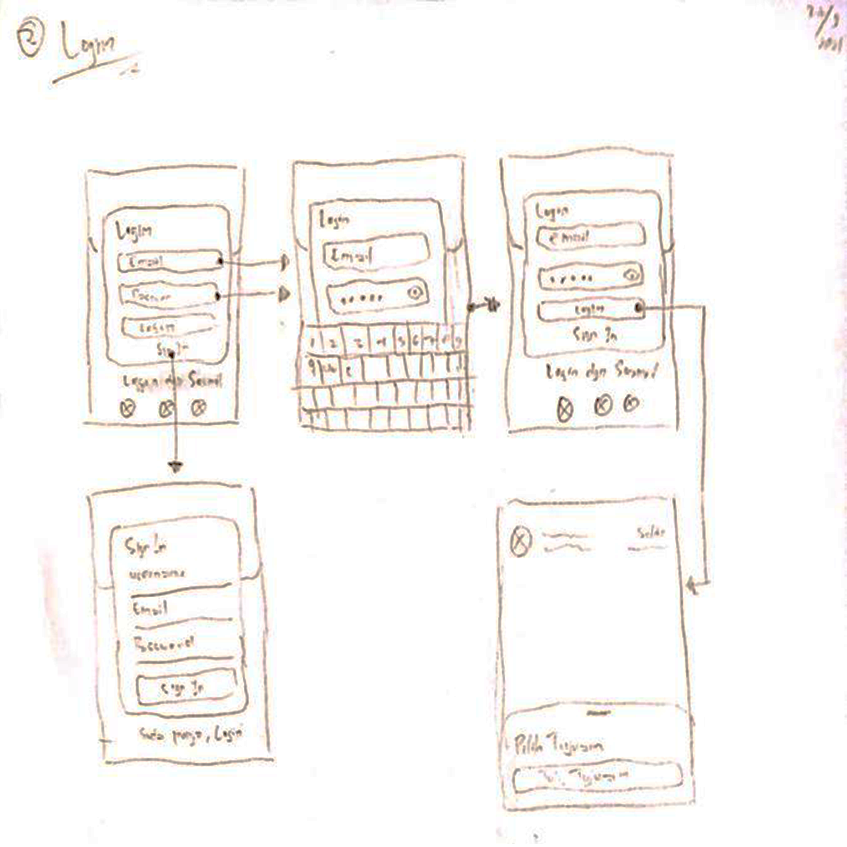 2 Login
Login
Email
Password
Login
Sign In
Login dgn Sosmed
Login
Email
1 2 3 4 5 6 7 8 9
Login
email
Login
Sign In
Login dgn Sosmed
Sign In
username
Email
Password
Sign In
Login
Saldo
Pilih Tujuan
Tujuan